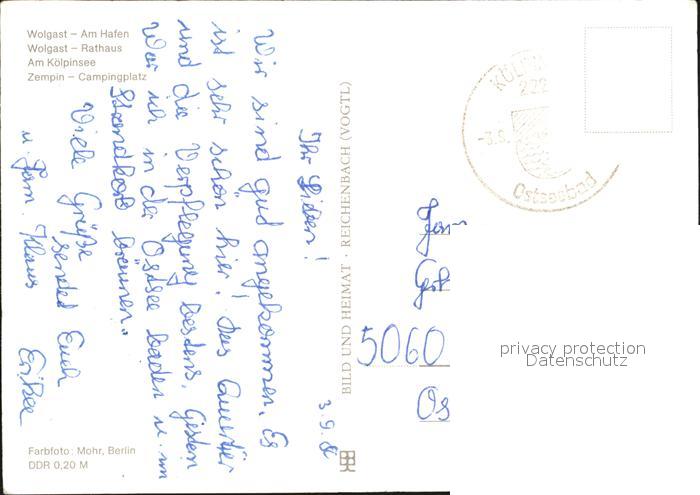 Wolgast – Am Hafen
Wolgast – Rathaus
Am Kölpinsee
Zempin – Campingplatz
3.9.
Ihr Lieben!
Wir sind gut angekommen. Es
ist sehr schön hier! Das Quartier
und die Verpflegung bestens. Gestern
War ich in der Ostsee baden u. im
Strandkorb bräunen.
Viele Grüße
sendet Euch
u. Fam. Klaus
BILD UND HEIMAT · REICHENBACH (VOGTL)
Farbfoto: Mohr, Berlin
DDR 0,20 M
KÖLP
222
-3.9.
Ostseebad
5060
privacy protection
Datenschutz